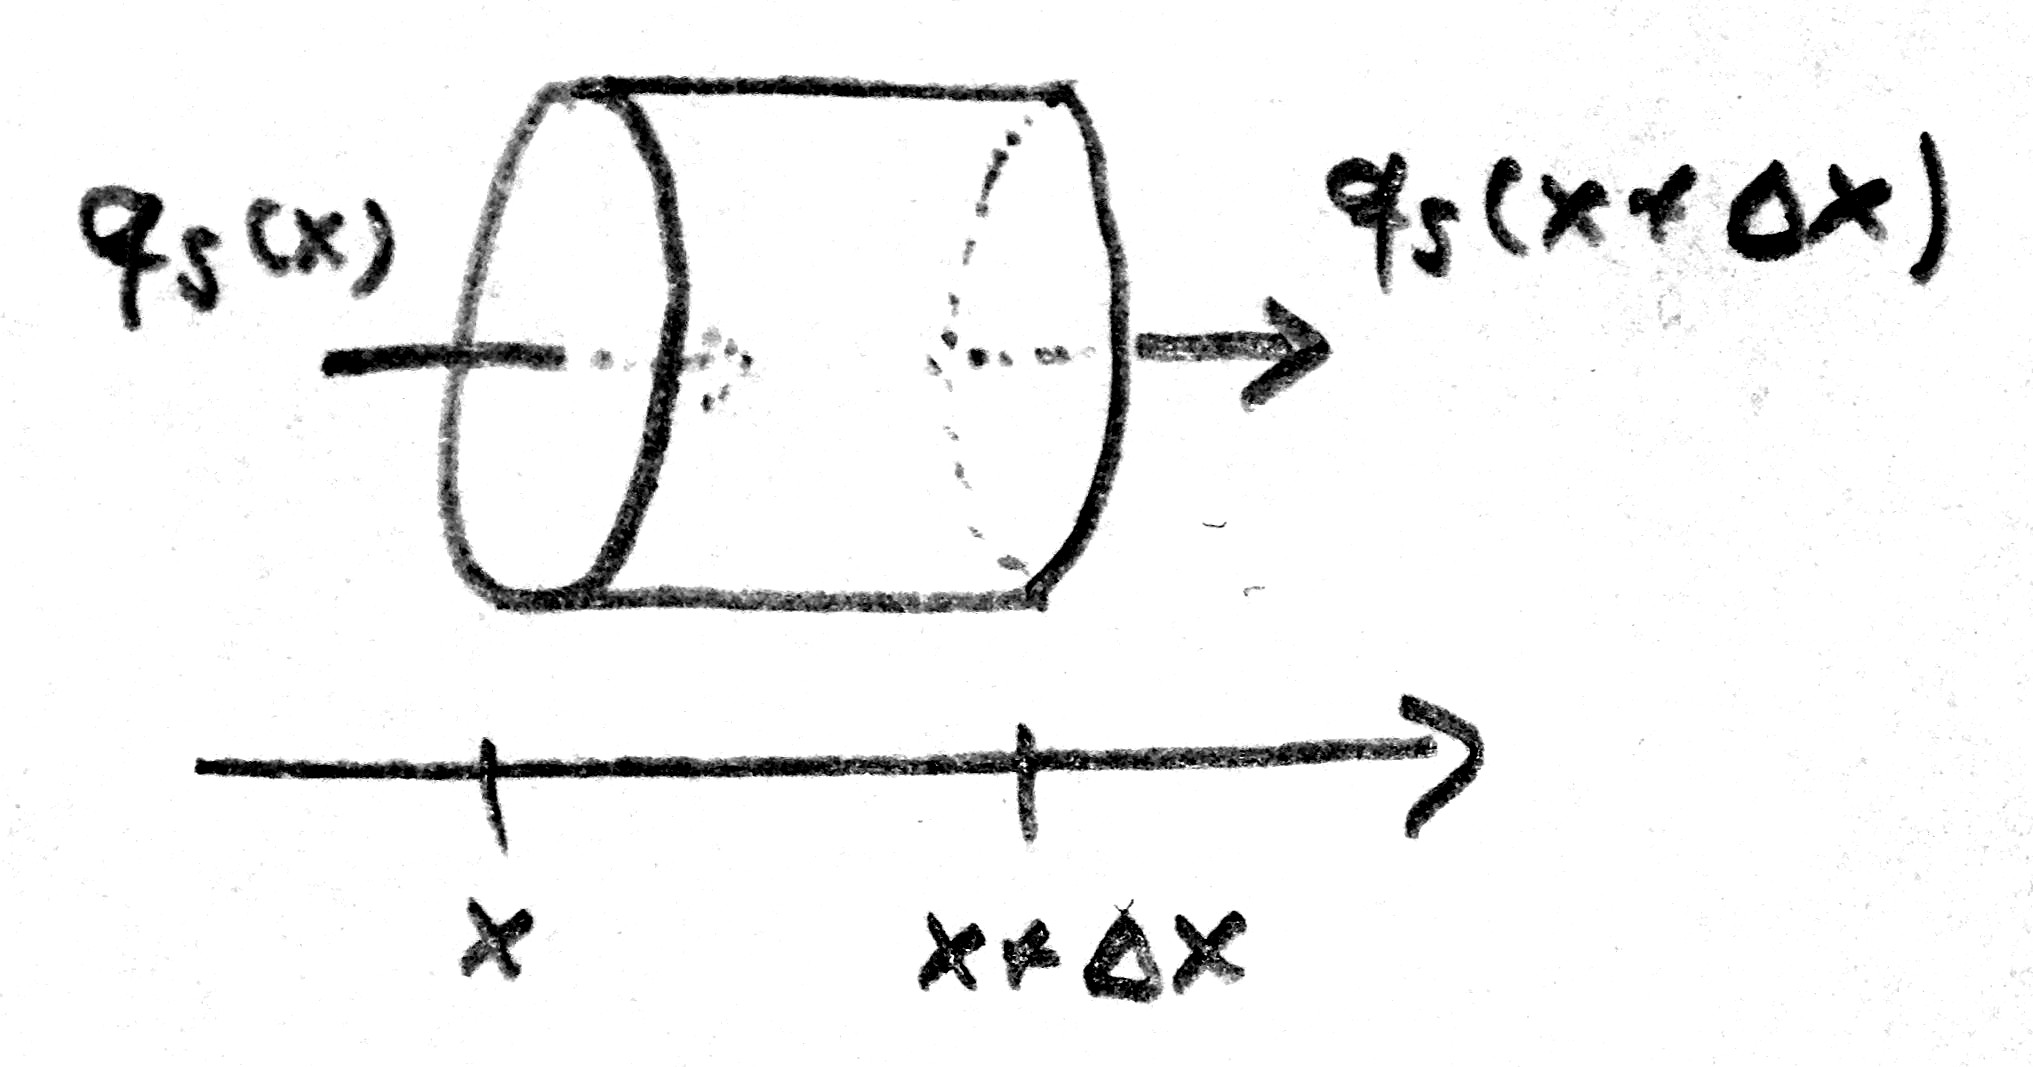 qs(x)
qs(x+Δx)
x
x+Δx